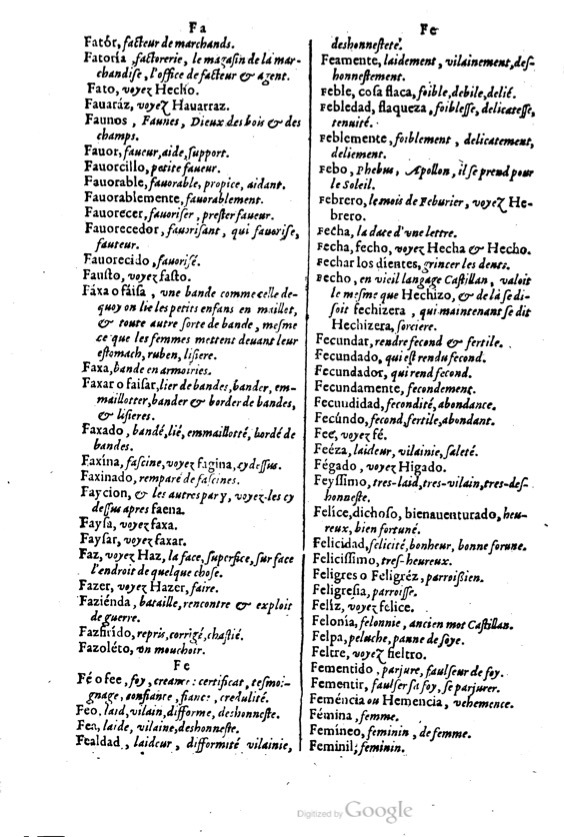 Fa
Fatór, facteur de marchands.
Fatoría, factorerie, le magasin de la mar-
chandise, l'office de facteur & agent.
Fato, voyez Hecho.
Fauaráz, voyez Hauarraz.
Faunos, Faunes, Dieux des bois & des
champs.
Fauor, faueur, aide, support.
Fauorcillo, petite faueur.
Fauorable, fauorable, propice, aidant.
Fauorablemente, fauorablement.
Fauorecer, fauoriser, prester faueur.
Fauorecedor, fauorisant, qui fauorise,
fauteur.
Fauorecido, fauorisé.
Fausto, voyez fasto.
Fáxa o faísa, vne bande comme celle de-
quoy on lie les petits enfans en maillet,
& toute autre sorte de bande, mesme
ce que les femmes mettent deuant leur
estomach, ruben, lisiere.
Faxa, bande en armoiries.
Faxar o faisar, lier de bandes, bander, em-
maillotter, bander & border de bandes,
& lisieres.
Faxado, bandé, lié, emmaillotté, bordé de
bandes.
Faxína, fascine, voyez fagina, cy dessus.
Faxinado, remparé de fascines.
Faycion, & les autres par y, voyez-les cy
dessus apres faena.
Faysa, voyez faxa.
Faysar, voyez faxar.
Faz, voyez Haz, la face, superfice, sur face
l'endroit de quelque chose.
Fazer, voyez Hazer, faire.
Faziénda, bataille, rencontre & exploit
de guerre.
Fazfirído, repris, corrigé, chastié.
Fazoléto, vn mouchoir.
Fe
Fé o fee, foy, creance: certificat, tesmoi-
gnage, confiance, fiance, credulité.
Feo, laid, vilain, difforme, deshonneste.
Fea, laide, vilaine, deshonneste.
Fealdad, laideur, difformité vilainie,
Fe
deshonnesteté.
Feamente, laidement, vilainement, des-
honnestement.
Feble, cosa flaca, foible, debile, delié.
Febledad, flaqueza, foiblesse, delicatesse,
tenuité.
Feblemente, foiblement, delicatement,
deliement.
Febo, Phebus, Apollon, il se prend pour
le Soleil.
Febrero, le mois de Feburier, voyez He-
brero.
Fecha, la date d'vne lettre.
Fecha, fecho, voyez Hecha & Hecho.
Fechar los dientes, grincer les dents.
Fecho, en vieil langage Castillan, valoit
le mesme que Hechizo, & de là se di-
soit fechizera, qui maintenant se dit
Hechizera, sorciere.
Fecundar, rendre fecond & fertile.
Fecundado, qui est rendu fecond.
Fecundador, qui rend fecond.
Fecundamente, fecondement.
Fecundidad, fecondité, abondance.
Fecúndo, fecond, fertile, abondant.
Fee, voyez fé.
Feéza, laideur, vilainie, saleté.
Fégado, voyez Higado.
Feyssimo, tres-laid, tres-vilain, tres-des-
honneste.
Felíce, dichoso, bienauenturado, heu-
reux, bien fortuné.
Felicidad, felicité, bonheur, bonne fortune.
Felicissimo, tres-heureux.
Feligres o Feligréz, parroißien.
Feligresia, parroisse.
Felíz, voyez felice.
Felonía, felonnie, ancien mot Castillan.
Felpa, peluche, panne de soye.
Feltre, voyez fieltro.
Fementido, parjure, faulseur de foy.
Fementir, faulser sa foy, se parjurer.
Feméncia ou Hemencia, vehemence.
Fémina, femme.
Femíneo, feminin, de femme.
Feminil; feminin.
Digitized by Google